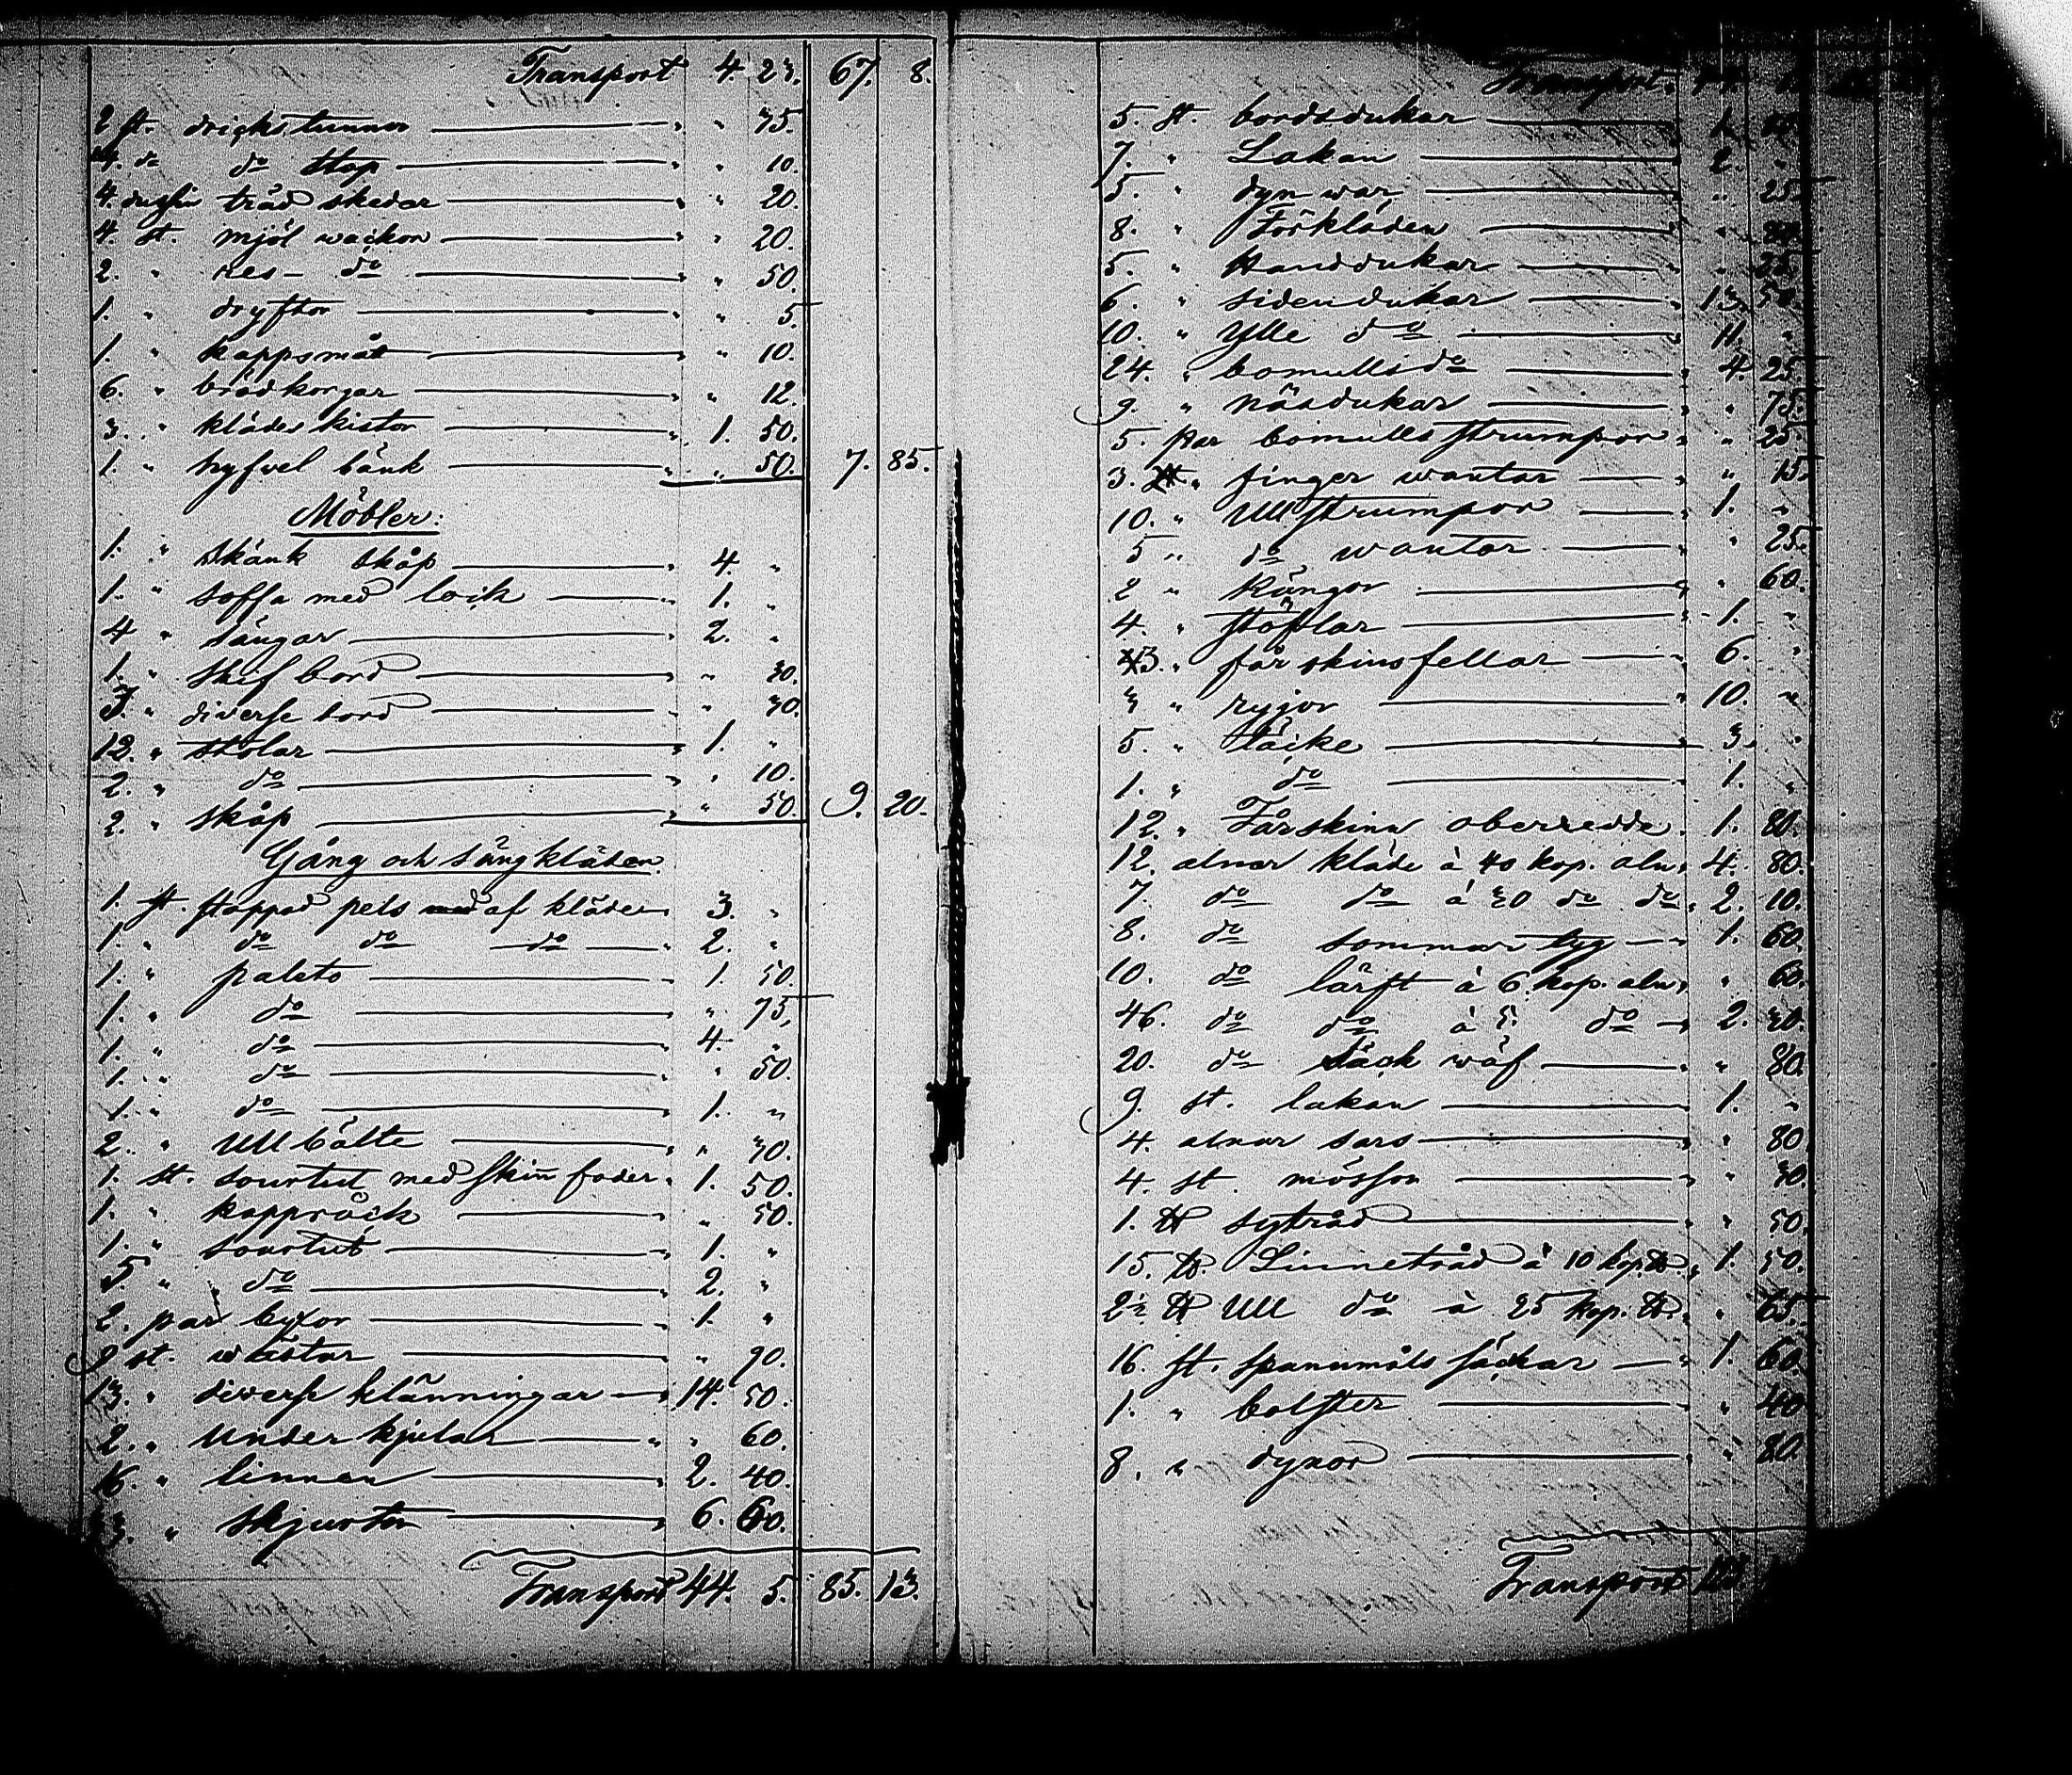 Transport 4. 23. 67. 8.
2 st. dricks tunnor — " " 75.
4. do do stop — " " 10.
4 dussin träd skedar — " " 20.
4. st. mjöl wackor — " " 20.
2. " res- do — " " 50.
1. " dryftor — " " 5.
1. " kappsmåt — " " 10.
6. " brödkorgar — " " 12.
3. " klädes kistor — " 1. 50.
1. " hyfvel bänk — " " 50. 7. 85.
Möbler:
1. " Skänk skåp — " 4. "
1. " soffa med lock — " 1. "
4 " sängar — " 2. "
1. " skif bord — " " 30.
3. " diverse bord — " " 30.
12. " stolar — " 1. "
2. " do — " " 10.
2. " skåp — " " 50. 9. 20.
Gång och sängkläden.
1. st. stoppad pels af kläde " 3. "
1. " do do do — " 2. "
1. " paleto — " 1. 50.
1. " do — " " 75.
1. " do — " 4. "
1. " do — " " 50.
1. " do — " 1. "
2. " Ull bälte — " " 30.
1. st. sourtut med skin foder. 1. 50.
1. " kapprock — " " 50.
1. " sourtut — " 1. "
5. " do — " 2. "
2. par byxor — " 1. "
9 st. wästar — " " 90.
13. " diverse klänningar — " 14. 50.
2. " Under kjolar — " " 60.
16. " linnen — " 2. 40.
" skjortor — " 6. 60.
Transport 44. 5. 85. 13.
Transport
5. st. bordsdukar —
7. " Lakan — 2. "
5. " dyn war — " 25.
8. " Förkläden — "
5. " Handdukar — " 25.
6. " sidendukar — " 13. 50.
10. " Ylle do — " 11. "
24. " bomulls do — " 4. 25.
9. " näsdukar — " " 75.
5. par bomulls strumpor " " 25.
3. " finger wantar — " " 15.
10. " Ull strumpor — " 1. "
5 " do wantar — " " 25.
2 " Kängor — " " 60.
4. " stöflar — " 1. "
3. " får skins fellar — " 6. "
3 " ryjor — " 10. "
5. " täcke — " 3. "
1. " do — " 1. "
12. " Fårskinn oberedde. 1. 80.
12. alnar kläde à 40 kop. aln " 4. 80.
7. do do à 30 do do " 2. 10.
8. do sommar tyg — " 1. 60.
10. do lärft à 6 kop. aln " " 60.
46. do do à 5. do — 2. 30.
20. do täck wäf — " " 80.
9. st. lakan — " 1. "
4. alnar sars — " " 80
4. st. mössor — " " 30
1. ℔ sytråd — " " 50.
15. ℔. Linnetråd à 10 kop. ℔. " 1. 50.
2½ ℔ Ull do à 25 kop. ℔. " 65.
16. st. spanmåls säckar — " 1. 60.
1. " bolster — " " 40
8. " dynor — " " 80.
Transport